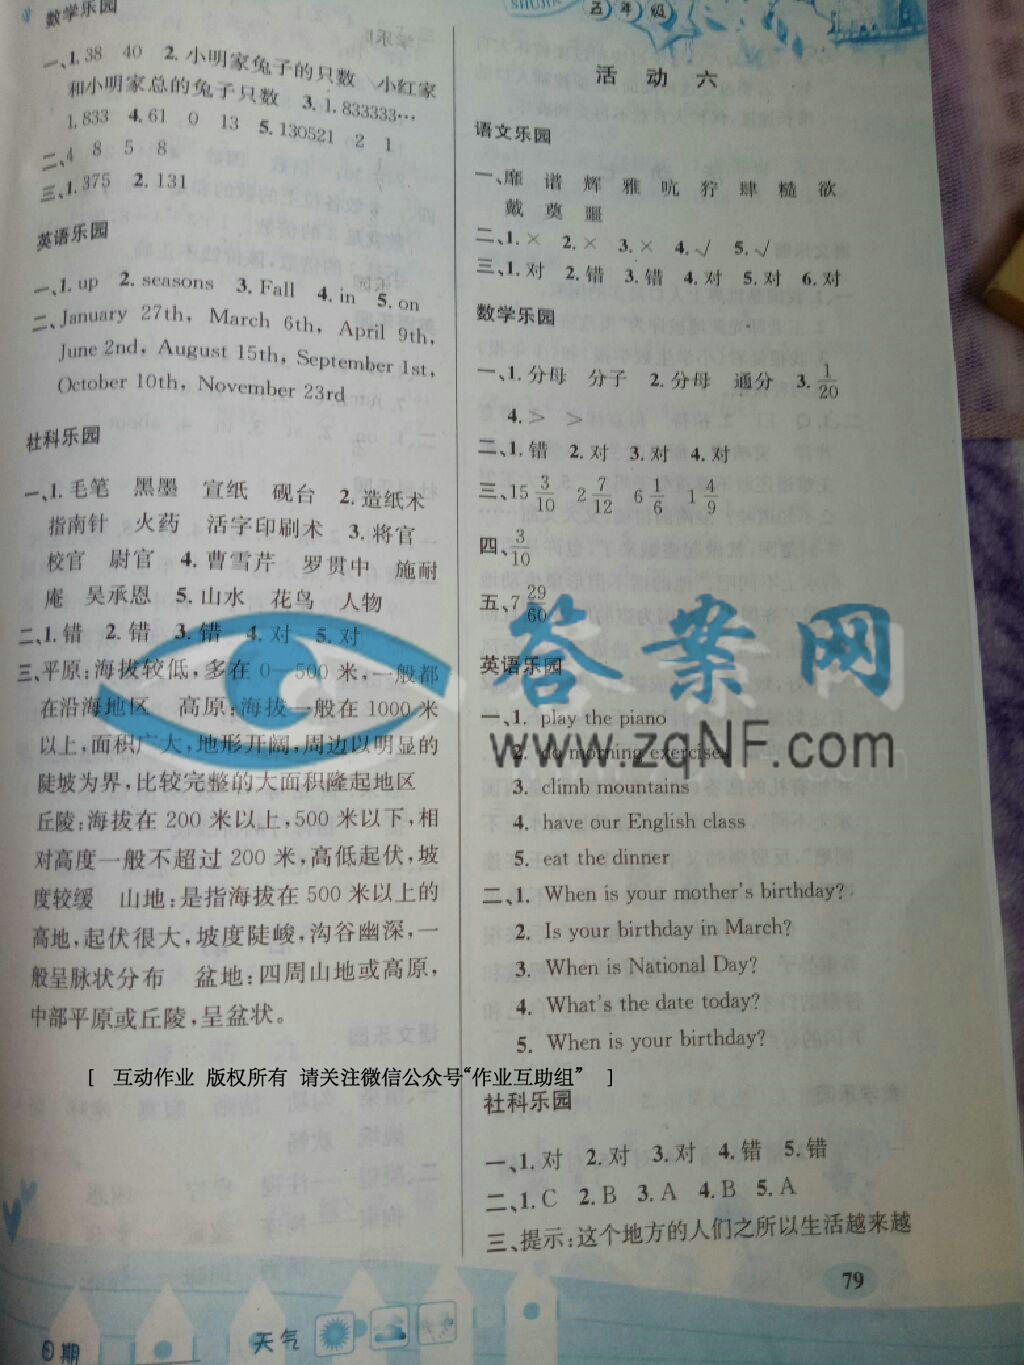 数学乐园
一、1.38 40 2.小明家兔子的只数 小红家
和小明家总的兔子只数 3.1.833333…
1.833 4.61 0 13 5.130521 2 1
二、4 8 5 8
三、1.375 2.131
英语乐园
一、1.up 2.seasons 3.Fall 4.in 5.on
二、January 27th, March 6th, April 9th,
June 2nd, August 15th, September 1st,
October 10th, November 23rd
社科乐园
一、1.毛笔 黑墨 宣纸 砚台 2.造纸术
指南针 火药 活字印刷术 3.将官
校官 尉官 4.曹雪芹 罗贯中 施耐
庵 吴承恩 5.山水 花鸟 人物
二、1.错 2.错 3.错 4.对 5.对
三、平原:海拔较低,多在0—500米,一般都
在沿海地区 高原:海拔一般在1000米
以上,面积广大,地形开阔,周边以明显的
陡坡为界,比较完整的大面积隆起地区
丘陵:海拔在200米以上,500米以下,相
对高度一般不超过200米,高低起伏,坡
度较缓 山地:是指海拔在500米以上的
高地,起伏很大,坡度陡峻,沟谷幽深,一
般呈脉状分布 盆地:四周山地或高原,
中部平原或丘陵,呈盆状。
[ 互动作业 版权所有 请关注微信公众号“作业互助组” ]
五年级
活动六
语文乐园
一、靡 谱 辉 雅 吭 狞 肆 糙 欲
戴 奠 疆
二、1.× 2.× 3.× 4.√ 5.√
三、1.对 2.错 3.错 4.对 5.对 6.对
数学乐园
一、1.分母 分子 2.分母 通分 3.1/20
4.> >
二、1.错 2.对 3.对 4.对
三、15 3/10 2 7/12 6 1/6 1 4/9
四、3/10
五、7 29/60
答案网
www.zqNF.com
英语乐园
一、1. play the piano
2. do morning exercises
3. climb mountains
4. have our English class
5. eat the dinner
二、1. When is your mother's birthday?
2. Is your birthday in March?
3. When is National Day?
4. What's the date today?
5. When is your birthday?
社科乐园
一、1.对 2.对 3.对 4.错 5.错
二、1.C 2.B 3.A 4.B 5.A
三、提示:这个地方的人们之所以生活越来越
79
日期
天气